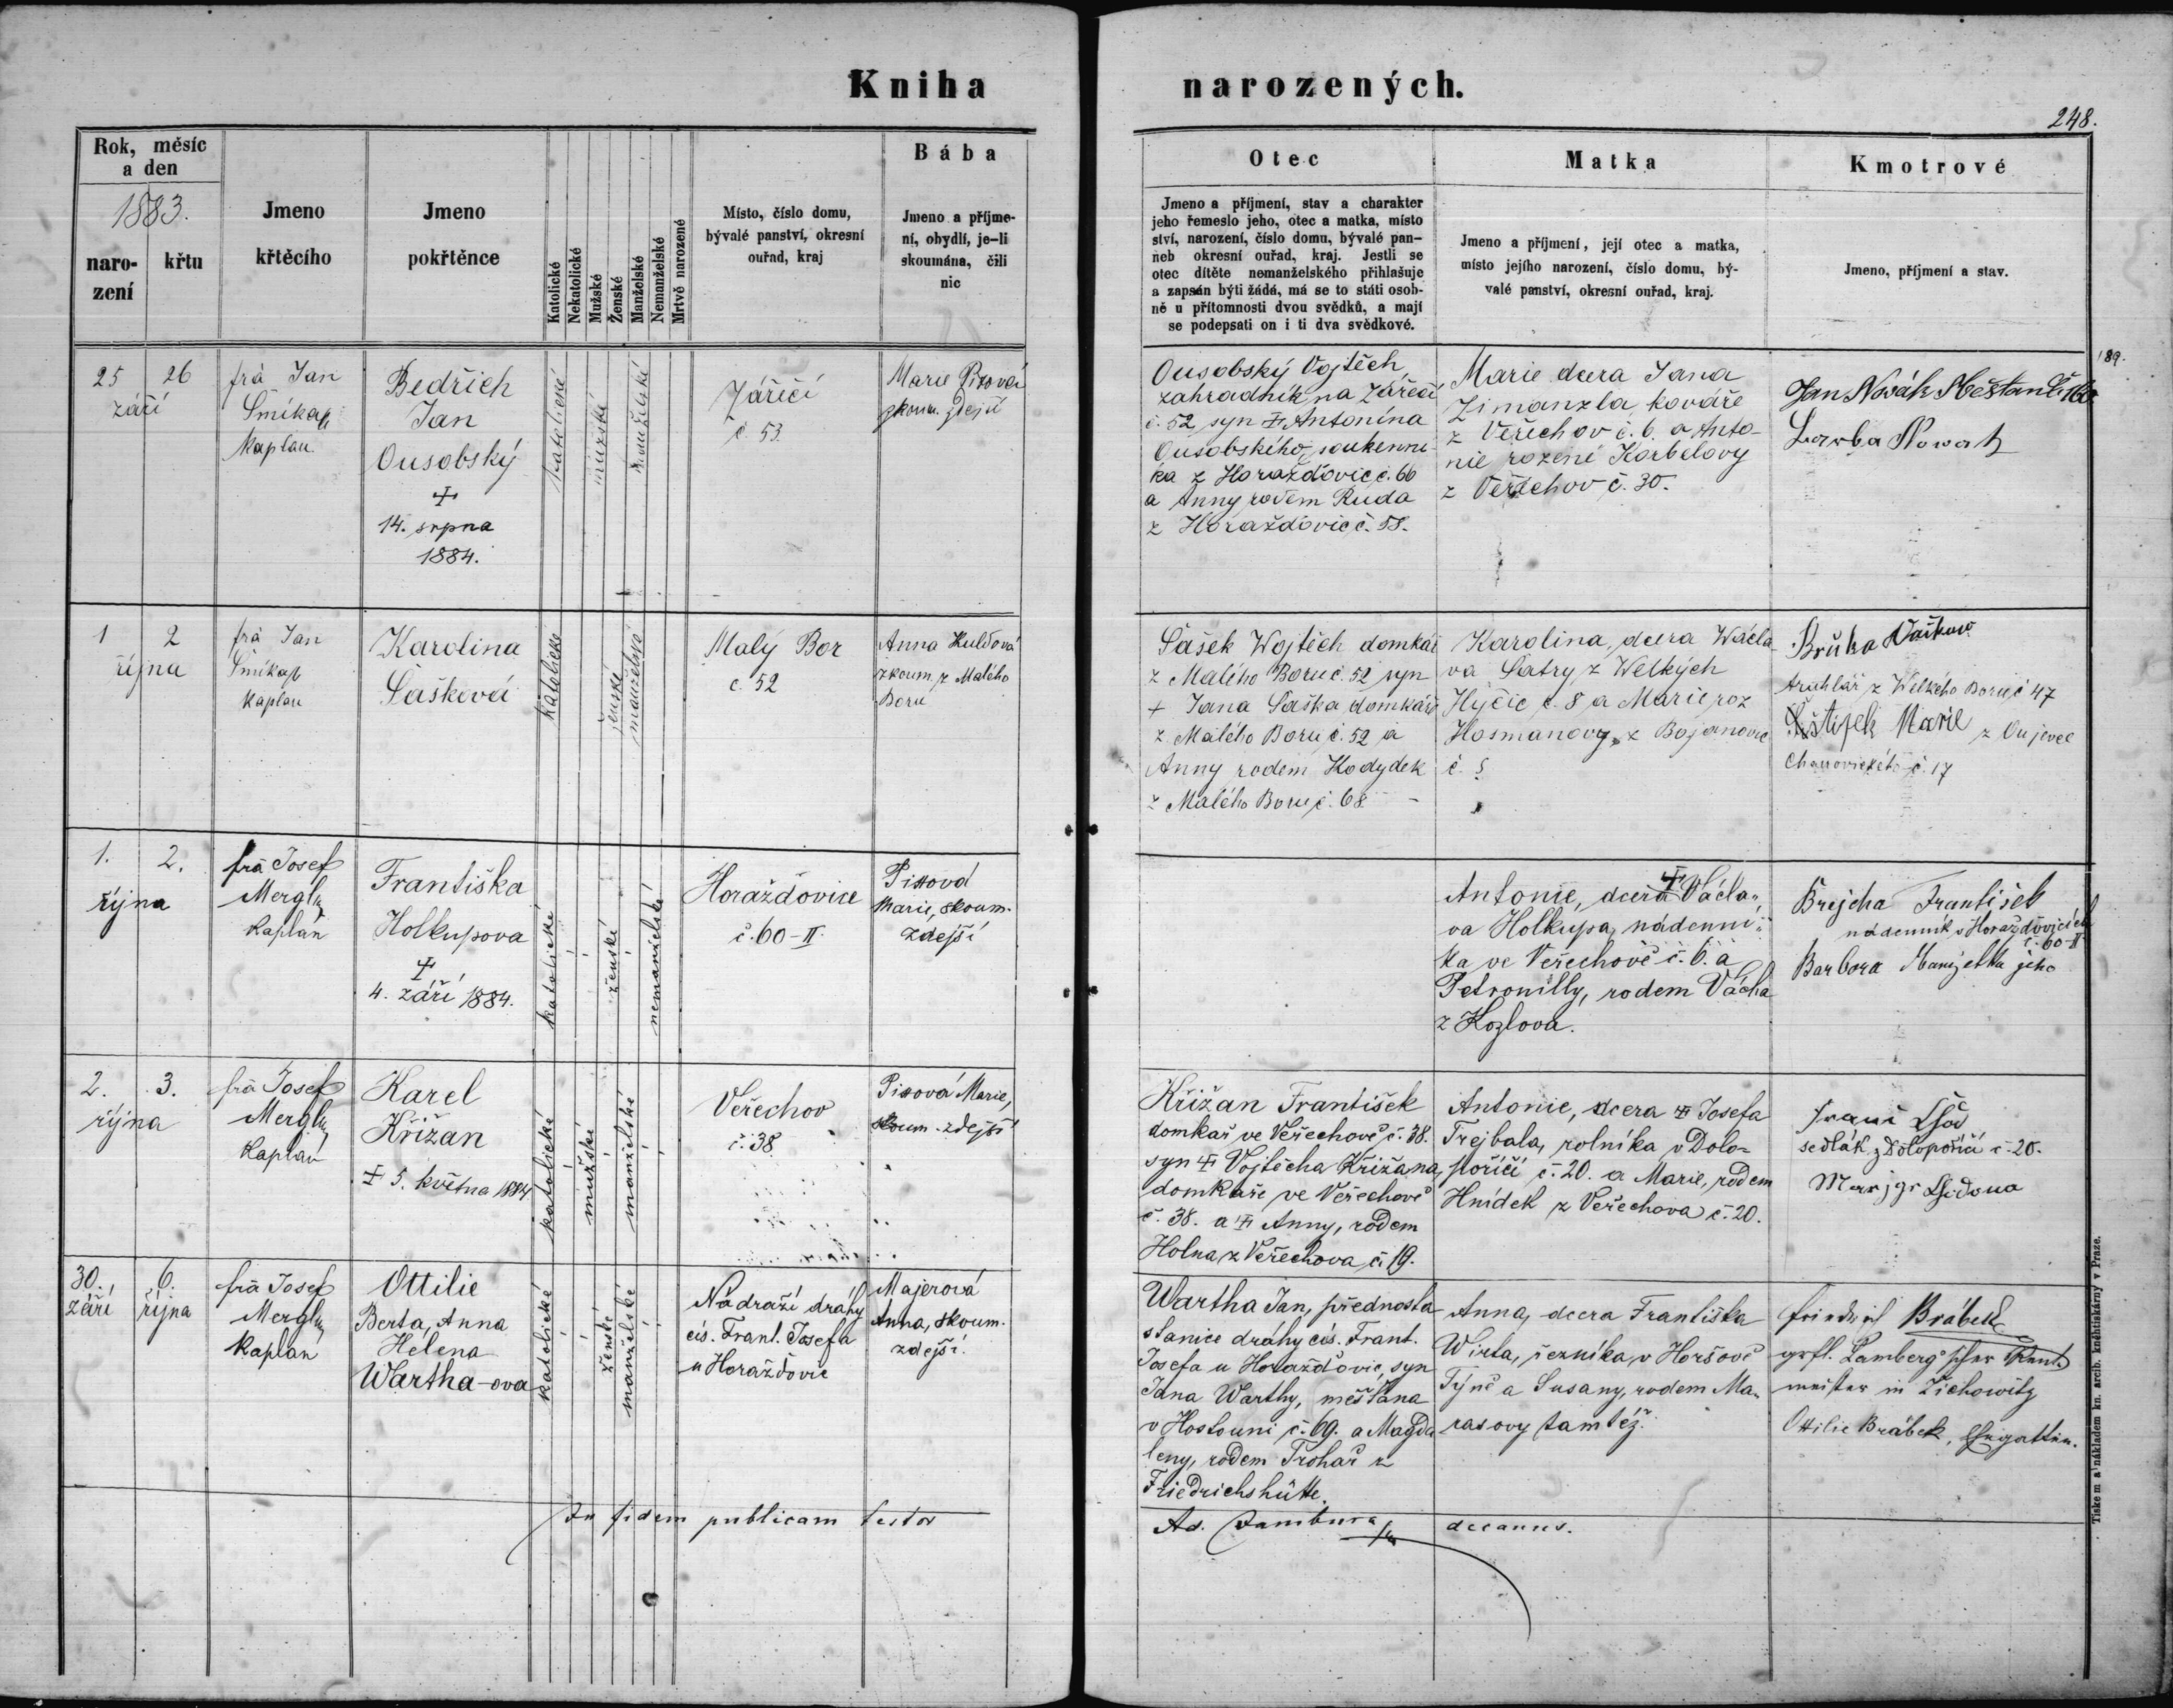 Kniha narozených.
248.
Rok, měsíc
a den
1883.
naro-
zení
křtu
Jmeno
křtěcího
Jmeno
pokřtěnce
Katolické
Nekatolické
Mužské
Ženské
Manželské
Nemanželské
Mrtvě narozené
Místo, číslo domu,
bývalé panství, okresní
ouřad, kraj
Bába
Jmeno a příjme-
ní, obydlí, je-li
skoumána, čili
nic
Otec
Jmeno a příjmení, stav a charakter
jeho řemeslo jeho, otec a matka, místo
ství, narození, číslo domu, bývalé pan-
neb okresní ouřad, kraj. Jestli se
otec dítěte nemanželského přihlašuje
a zapsán býti žádá, má se to státi osob-
ně u přítomnosti dvou svědků, a mají
se podepsati on i ti dva svědkové.
Matka
Jmeno a příjmení, její otec a matka,
místo jejího narození, číslo domu, bý-
valé panství, okresní ouřad, kraj.
Kmotrové
Jmeno, příjmení a stav.
25 26
září
frà Jan
Šmíkal
Kaplan.
Bedřich
Jan
Ousobský
+
14. srpna
1884.
katolické
mužské
manželské
Záříčí
č. 53.
Marie Pixová
zkoum. zdejší
Ousobský Vojtěch,
zahradník na Zářečí
č. 52, syn + Antonína
Ousobského, soukenní-
ka z Horažďovic č. 66
a Anny rodem Ruda
z Horažďovic č. 58.
Marie dcera Jana
Zimanzla, kováře
z Veřechov č. 6. a Anto-
nie rozené Korbelovy
z Veřechov č. 30.
Jan Novák
Nowak
189.
1 2
října
frà Jan
Šmíkal
kaplan
Karolina
Šašková
katolické
ženské
manželské
Malý Bor
č. 52
Anna Kulďová
zkoum. z Malého
Boru
Šašek Wojtěch domkář
z Malého Boru č. 52 syn
+ Jana Šaška domkáře
z Malého Boru č. 52 a
Anny rodem Kodydek
z Malého Boru č. 68
Karolina, dcera Wácla-
va Šatry z Welkých
Hyčic č. 8 a Marie roz
Hosmanovy z Bojanovic
č. 5
Brůha
truhlář z Welkého Boru č 47
Marie z Oujezec
Chanovického č. 17
1. 2.
října
frà Josef
Mergl
Kaplan
Františka
Holkupova
+
4. září 1884.
katolické
ženské
nemanželské
Horažďovice
č. 60-II.
Pixová
Marie, skoum.
zdejší
Antonie, dcera + Václa-
va Holkupa, nádenní-
ka ve Veřechově č. 6. a
Petronilly, rodem Vácha
z Kozlova.
Brejcha František
nádenník v Horažďovicích
č. 60-II
Barbora Manželka jeho
2. 3.
října
frà Josef
Mergl
Kaplan
Karel
Křižan
+ 5. května 1884
katolické
mužské
manželské
Veřechov
č. 38
Pixová Marie,
skoum. zdejší
Křižan František
domkař ve Veřechově č. 38.
syn + Vojtěcha Křižana,
domkaře ve Veřechově
č. 38. a + Anny, rodem
Holna z Veřechova č. 19.
Antonie, dcera + Josefa
Trejbala, rolníka v Dolo-
poříčí č. 20. a Marie, rodem
Hnídek z Veřechova č. 20.
sedlák z Doloporičí č 20.
30. 6.
září října
frà Josef
Mergl
Kaplan
Ottilie
Berta, Anna
Helena
Wartha-ova
katolické
ženské
manželské
Nádraží dráhy
cís. Frant. Josefa
u Horažďovic
Majerová
Anna, skoum.
zdejší.
Wartha Jan, přednosta
stanice dráhy cís. Frant.
Josefa u Horažďovic, syn
Jana Warthy, měšťana
v Hostouni č. 69. a Magda
leny, rodem Trohař z
Friedrichshütte.
Anna, dcera Františka
Wirta, řezníka v Horšově
Týně a Susany, rodem Ma-
rasovy tamtéž.
Friedrich Brábek
grfl. Lamberg'scher Rent-
meister in Žichowitz
Ottilie Brábek, Ehegattin.
In fidem publicam testor
Ad. Jambura decanus.
Tiskem a nákladem kn. arcib. knihtiskárny v Praze.